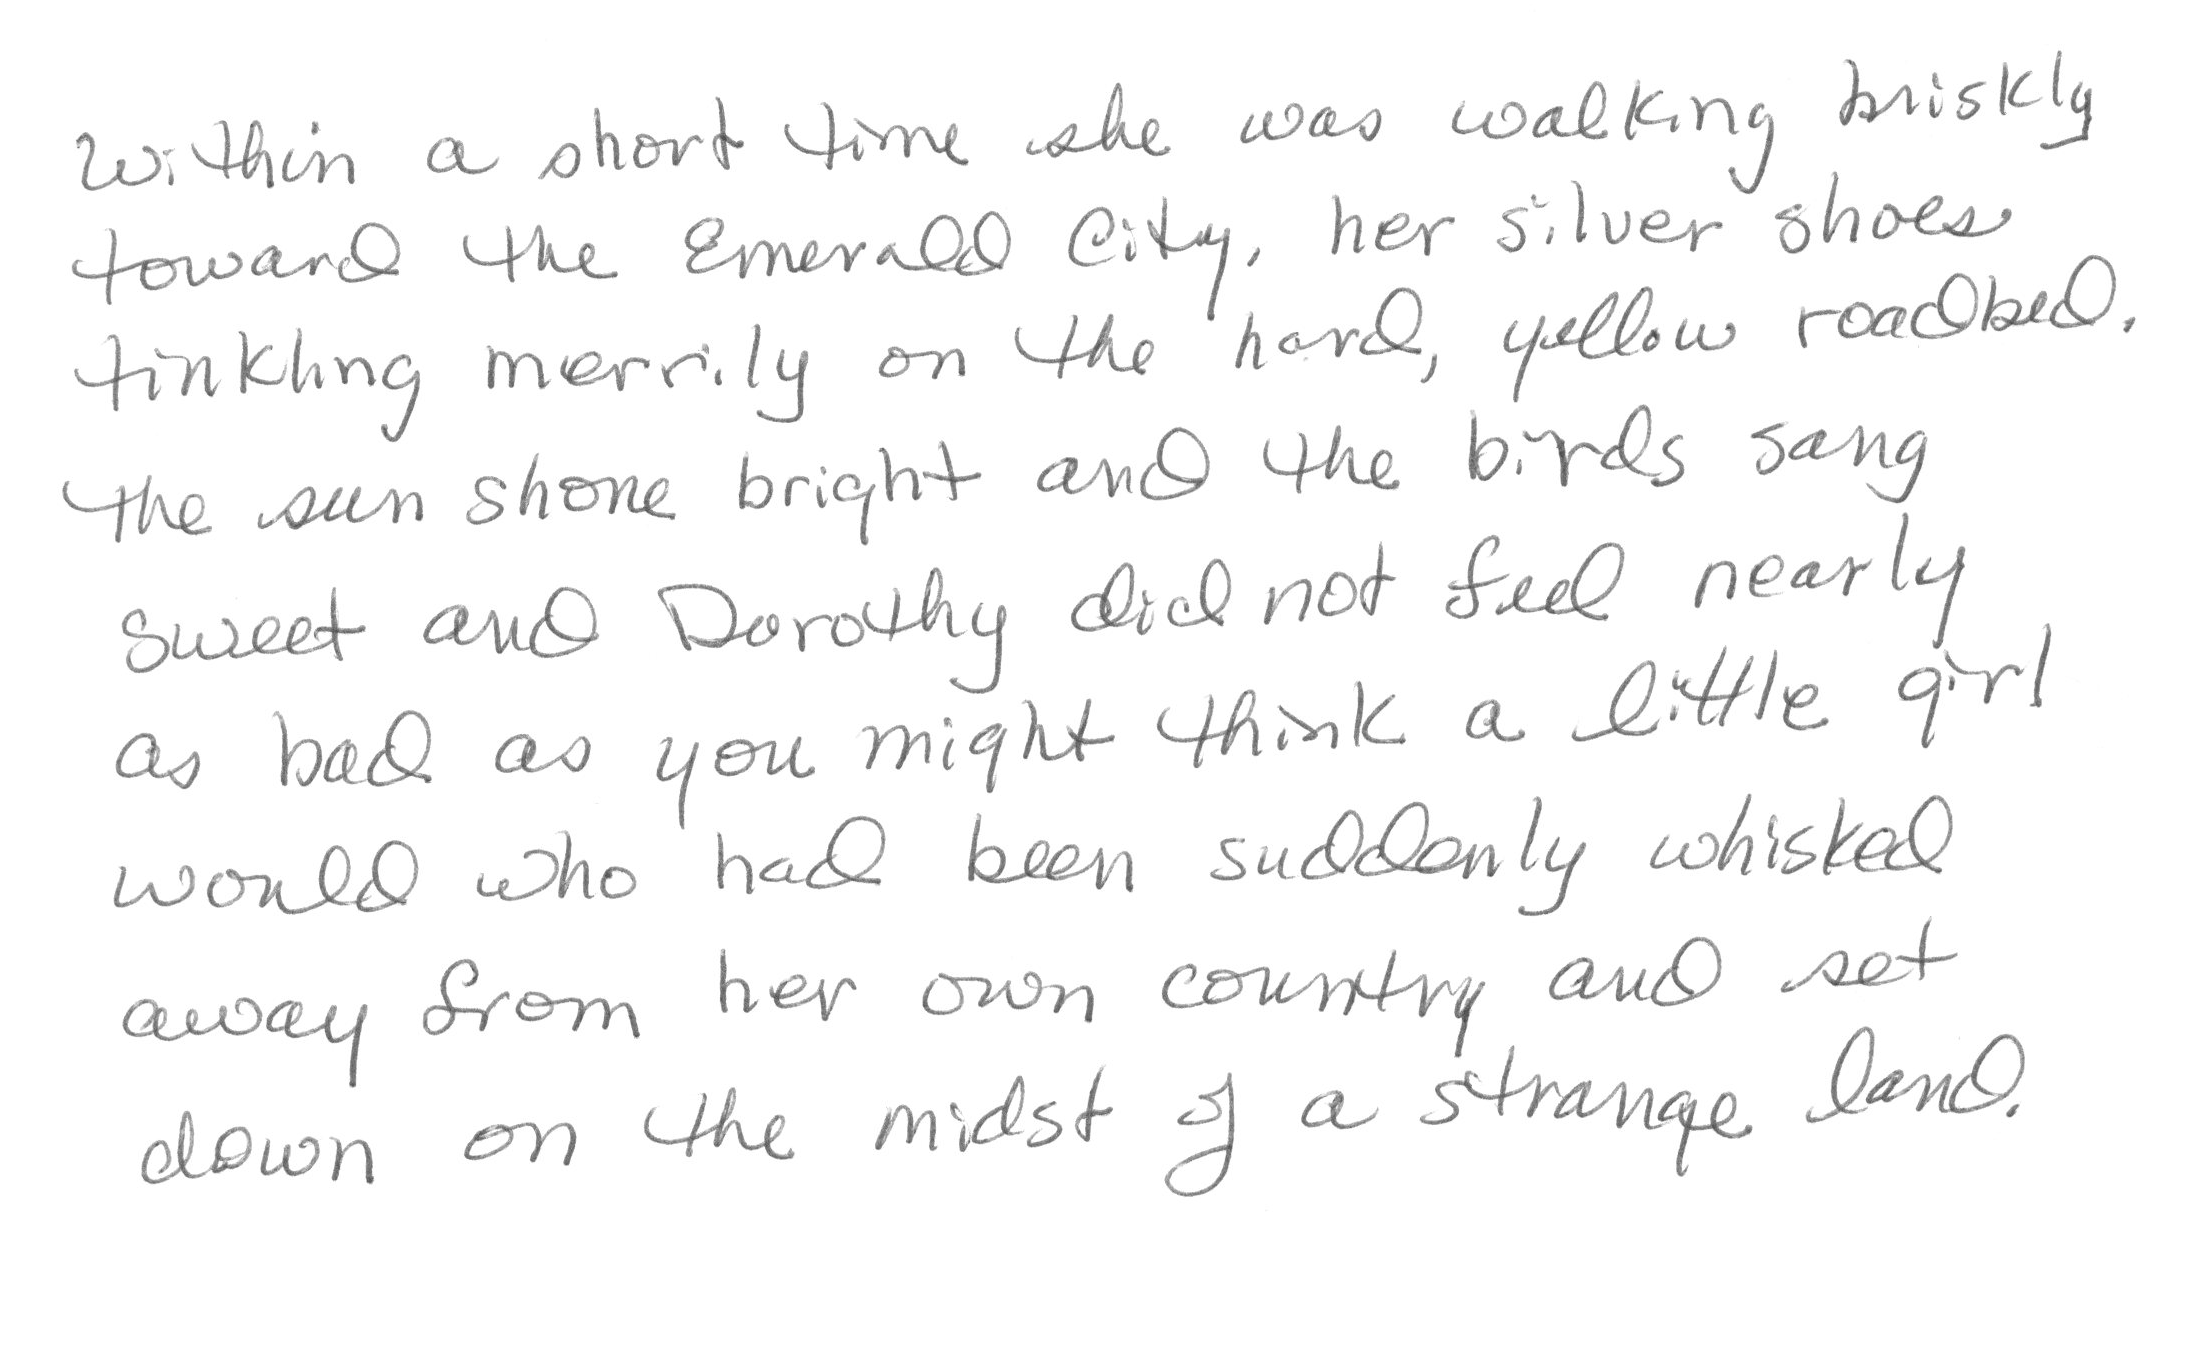 Within a short time she was walking briskly
toward the Emerald City, her silver shoes
tinkling merrily on the hard, yellow roadbed.
the sun shone bright and the birds sang
sweet and Dorothy did not feel nearly
as bad as you might think a little girl
would who had been suddenly whisked
away from her own country and set
down on the midst of a strange land.